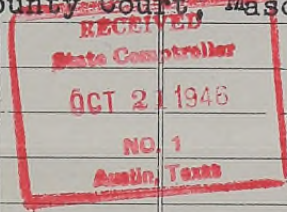 County Court, Maso
RECEIVED
State Comptroller
OCT 21 1946
NO. 1
Austin, Texas